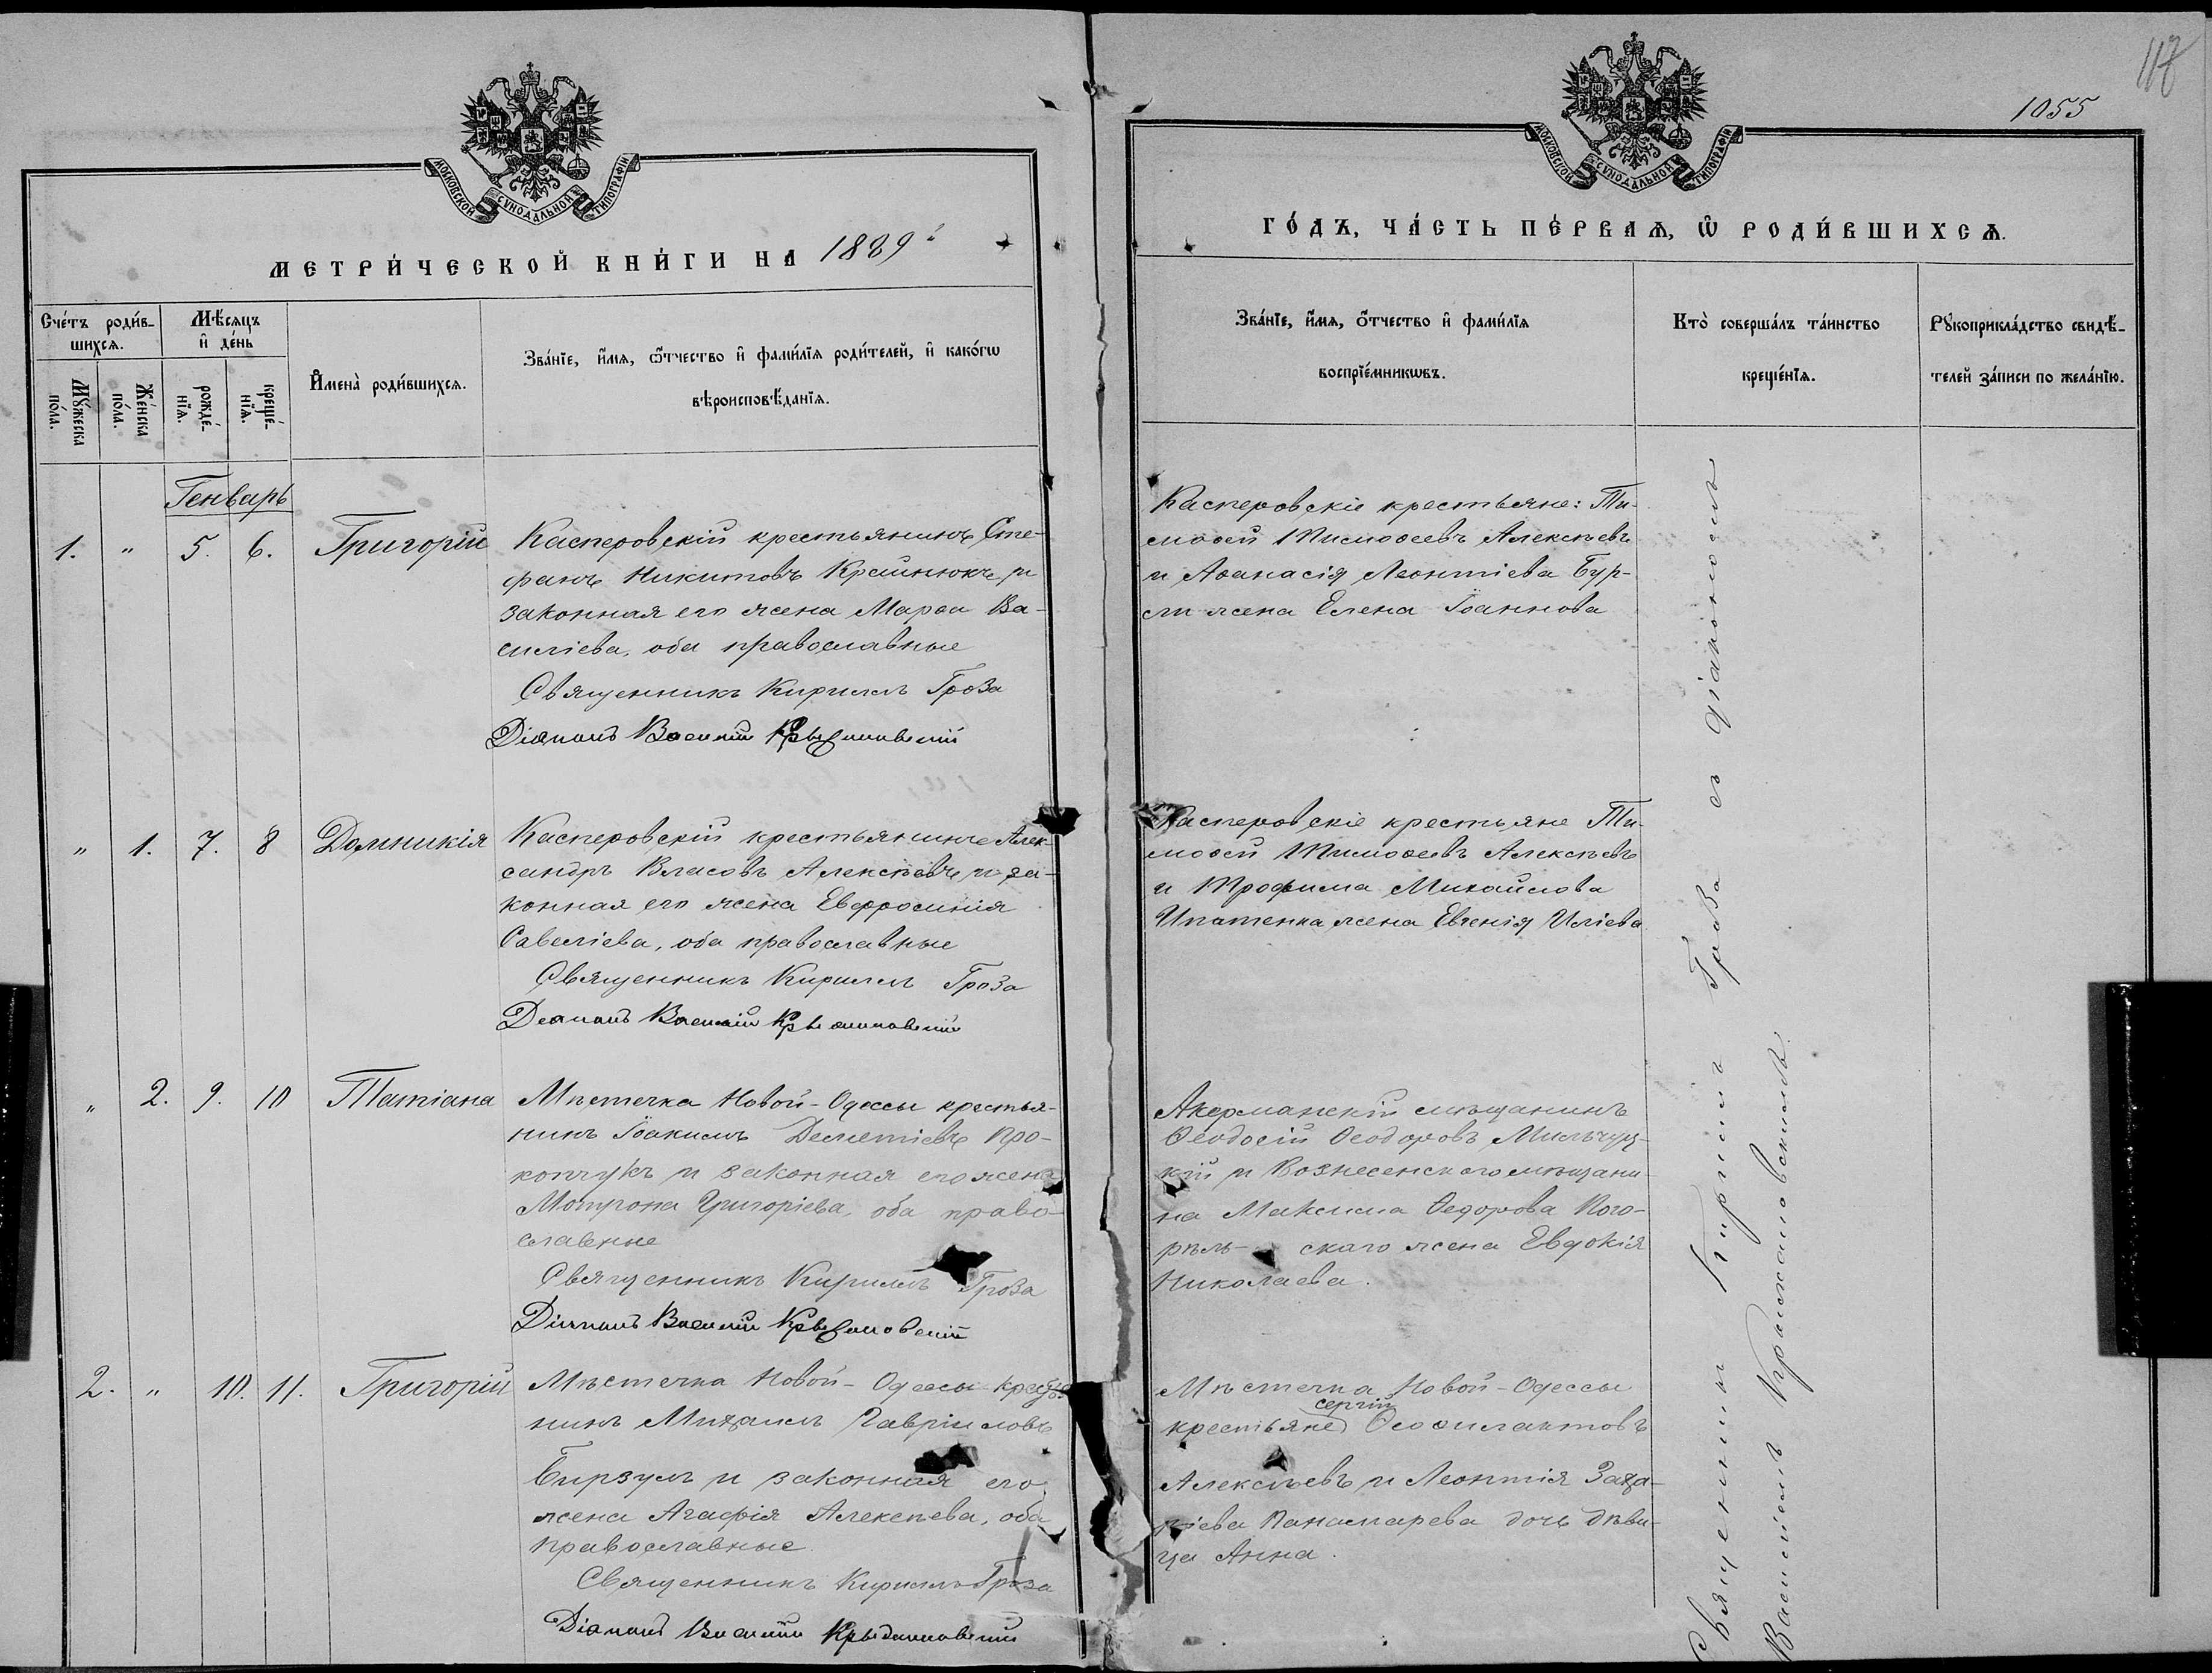 МОСКОВСКОЙ СУНОДАЛЬНОЙ ТИПОГРАФІИ
МЕТРИ́ЧЕСКОЙ КНИ́ГИ НА 1889
Сче́тъ роди́в-
шихсѧ.
Мѣ́сяцъ
и҆ де́нь
Мꙋ́жеска
по́ла.
Же́нска
по́ла.
рожде́-
нїѧ.
креще́-
нїѧ.
И҆мена̀ роди́вшихсѧ.
Зва́нїе, и҆́мѧ, ѻ҆́тчество и҆ фами́лїѧ роди́телей, и҆ како́гѡ
вѣроисповѣ́данїѧ.
Генварь
1. " 5. 6. Григорій
Касперовскій крестьянинъ Сте-
фанъ Никитовъ Крайнюкъ и
законная его жена Марѳа Ва-
силіева, оба православные
Священникъ Кириллъ Гроза
Діаконъ Василій
" 1. 7. 8 Домникія
Касперовскій крестьянинъ Алек-
сандръ Власовъ Алексѣевъ и за-
конная его жена Евфросинія
Савеліева, оба православные
Священникъ Кириллъ Гроза
Діаконъ Василій
" 2. 9. 10 Татіана
Мѣстечка Новой-Одессы крестья-
нинъ Іоакимъ Дементіевъ Про-
копчукъ и законная его жена
Мотрона Григоріева, оба право-
славные
Священникъ Кириллъ Гроза
Діаконъ Василій
2. " 10. 11. Григорій
Мѣстечка Новой-Одессы
нинъ Михаилъ Гавріиловъ
Бирзулъ и законная его
жена Агафія Алексѣева, оба
православные.
Священникъ Кириллъ Гроза
Діаконъ Василій
117
1055
МОСКОВСКОЙ СУНОДАЛЬНОЙ ТИПОГРАФІИ
ГО́ДЪ, ЧА́СТЬ ПЕ́РВАѦ, Ѽ РОДИ́ВШИХСѦ.
Зва́нїе, и҆́мѧ, ѻ҆́тчество и҆ фами́лїѧ
воспрїе́мникѡвъ.
Кто̀ соверша́лъ та́инство
креще́нїѧ.
Рꙋкоприкла́дство свидѣ́-
телей за́писи по жела́нїю.
Касперовскіе крестьяне: Ти-
моѳей Тимоѳеевъ Алексѣевъ
и Аѳанасія Леонтіева Бур-
жена Елена Іоаннова
Касперовскіе крестьяне Ти-
моѳей Тимоѳеевъ Алексѣевъ
и Трофима Михайлова
Ипатенка жена Евгенія Иліева
Акерманскій мѣщанинъ
Ѳеодосій Ѳеодоровъ Мильчуц-
кій и Вознесенского мѣщани-
на Максима Ѳедорова Пого-
рѣль- скаго жена Евдокія
Николаева.
Мѣстечка Новой-Одессы
Сергій
крестьяне Ѳеофилактовъ
Алексѣевъ и Леонтія Заха-
ріева Панамарева дочь дѣви-
ца Анна.
Священникъ Кириллъ Гроза съ діакономъ
Василіемъ